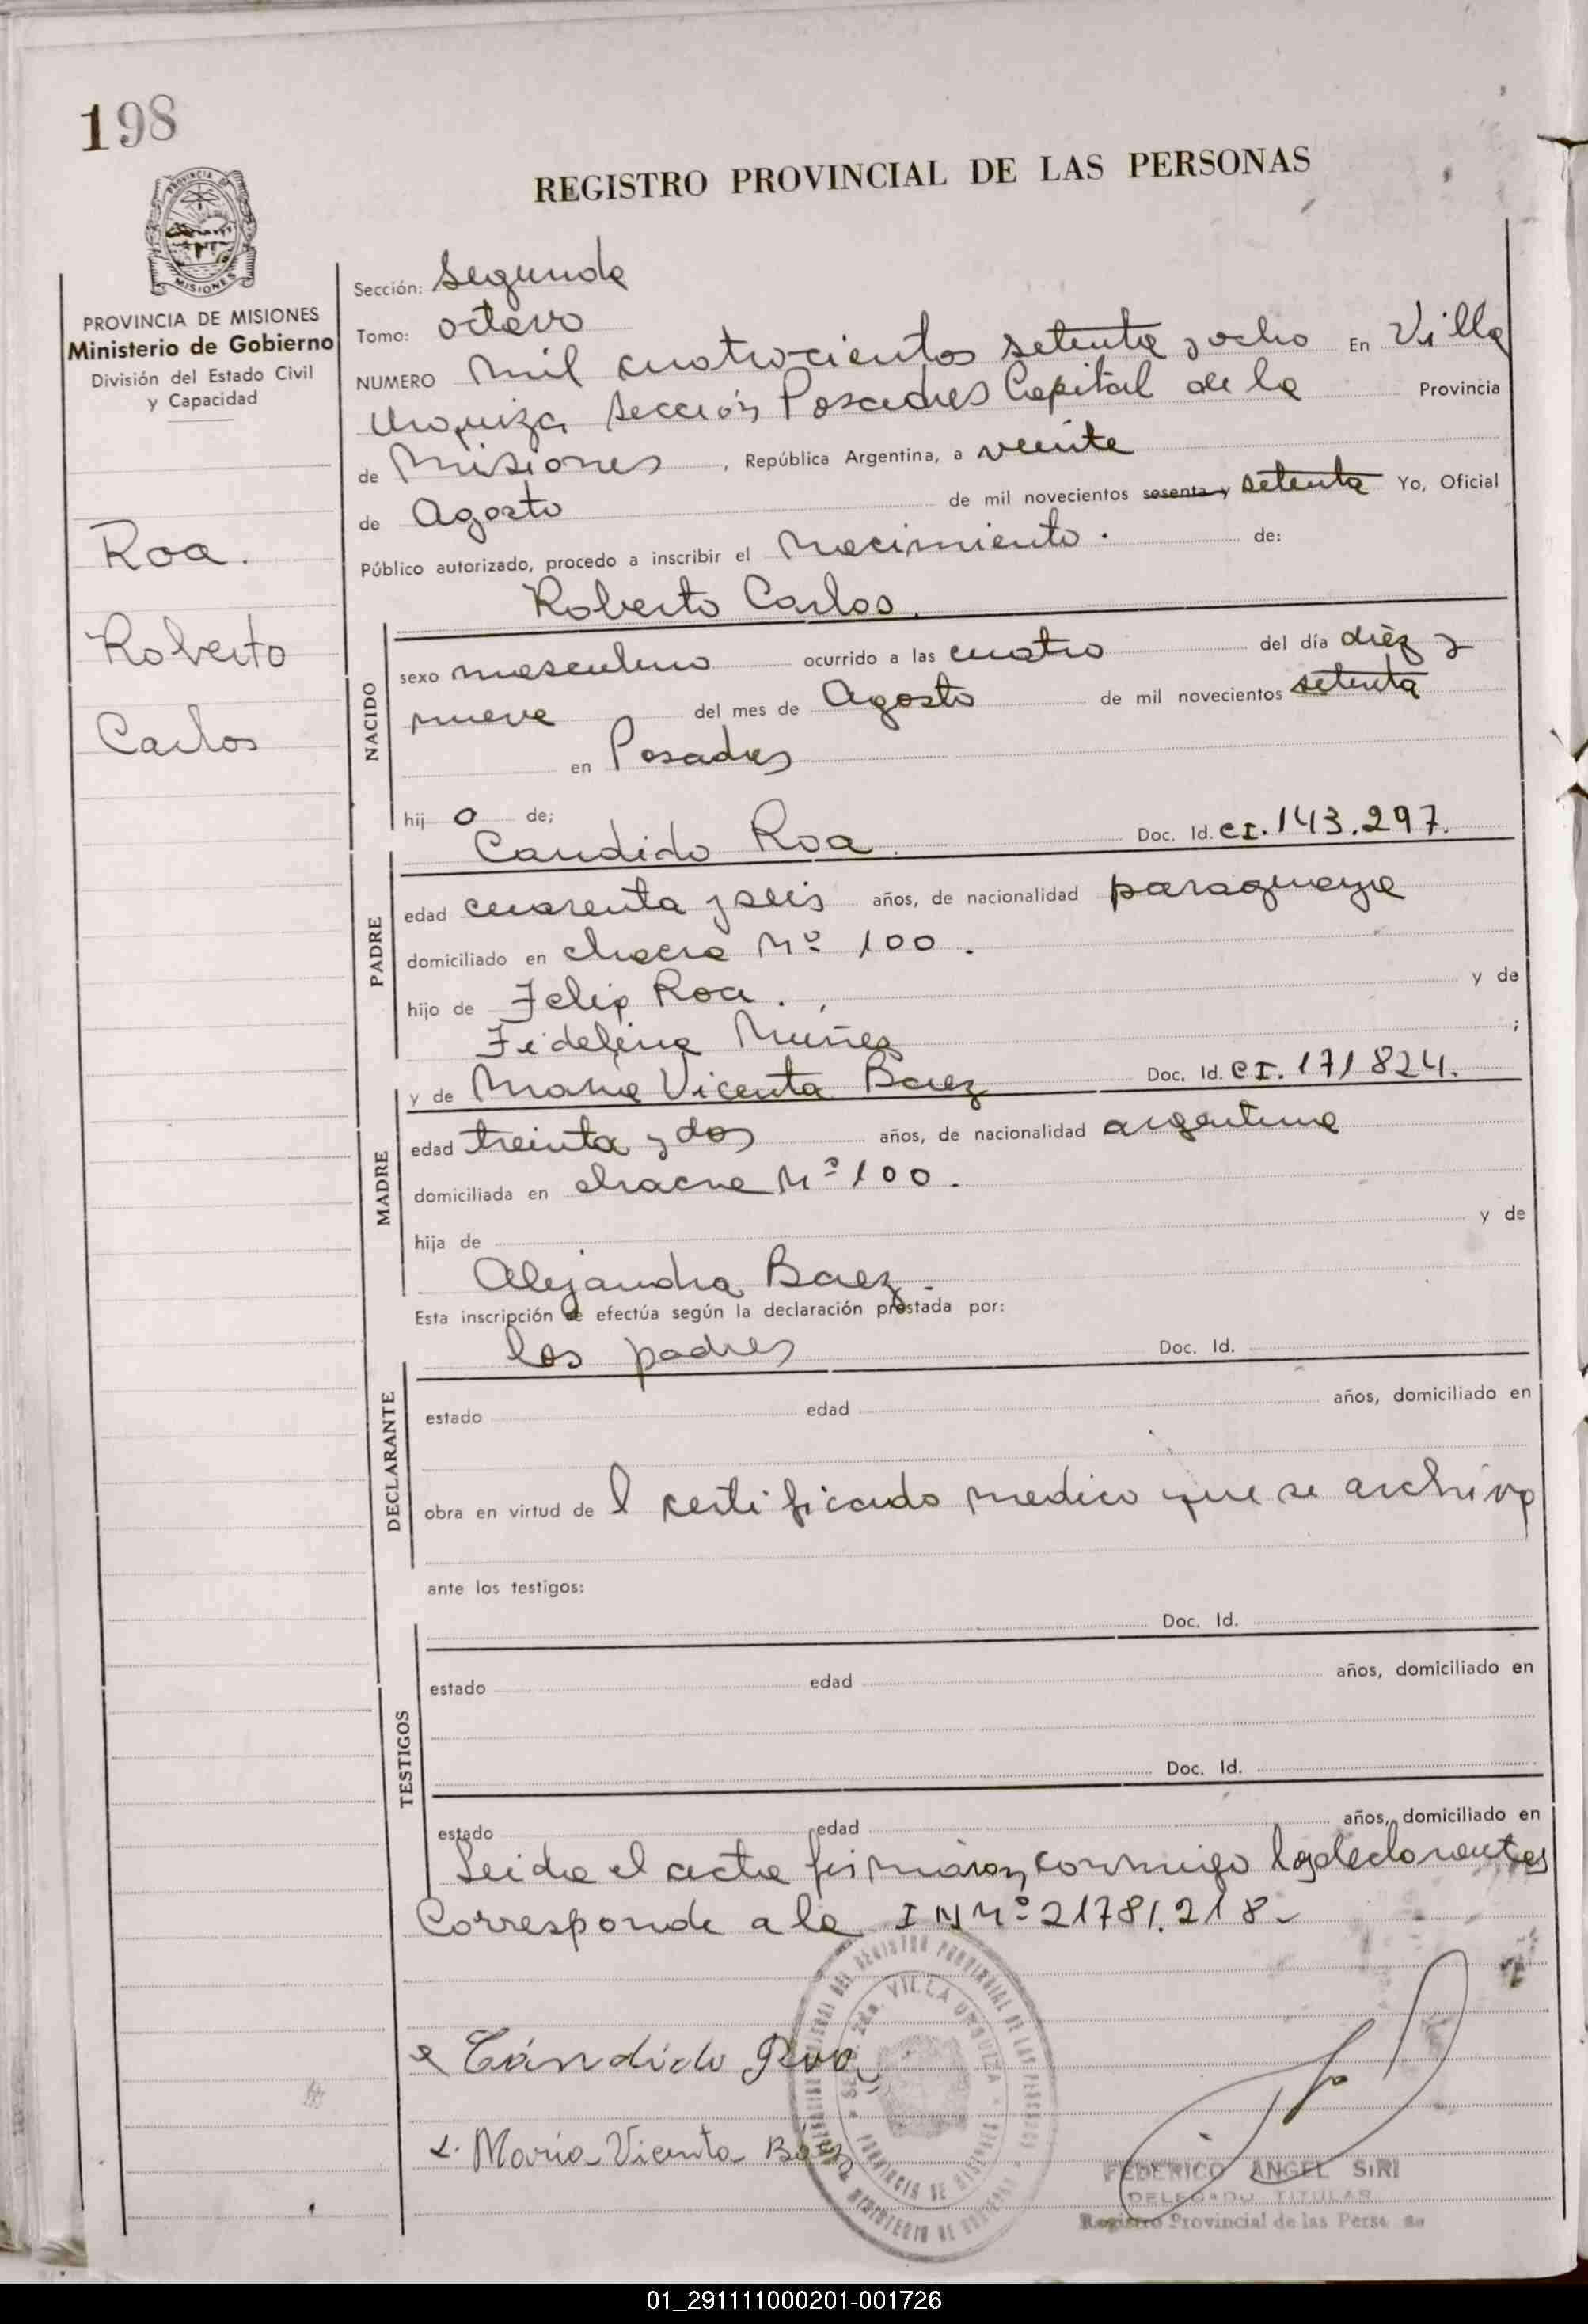 198
REGISTRO PROVINCIAL DE LAS PERSONAS
PROVINCIA DE MISIONES
MISIONES
PROVINCIA DE MISIONES
Ministerio de Gobierno
División del Estado Civil
y Capacidad
Roa.
Roberto
Carlos
Sección: Segunda
Tomo: octavo
NUMERO Mil cuatrocientos setenta y ocho En Villa
Urquiza Sección Posadas Capital de la Provincia
de Misiones, República Argentina, a veinte
de Agosto de mil novecientos sesenta y setenta Yo, Oficial
Público autorizado, procedo a inscribir el Nacimiento. de:
Roberto Carlos.
NACIDO
sexo masculino ocurrido a las cuatro del día diez y
nueve del mes de Agosto de mil novecientos setenta
en Posadas
hij o de;
Candido Roa. Doc. Id. CI. 143.297.
PADRE
edad cuarenta y seis años, de nacionalidad paraguaya
domiciliado en chacra Nº 100.
hijo de Felip Roa. y de
Fidelina Muñez ;
y de Maria Vicenta Baez Doc. Id. CI. 171824.
MADRE
edad treinta y dos años, de nacionalidad argentina
domiciliada en chacra Nº 100.
hija de y de
Alejandra Baez.
Esta inscripción se efectúa según la declaración prestada por:
los padres Doc. Id.
DECLARANTE
estado edad años, domiciliado en
obra en virtud de l certificado medico que se archiva
ante los testigos:
Doc. Id.
TESTIGOS
estado edad años, domiciliado en
Doc. Id.
estado edad años, domiciliado en
Leida el acta firmaron conmigo los declarantes
Corresponde a la IN Nº 21781.218.
Cándido Roa
María Vicenta Báez
VILLA URQUIZA
PROVINCIA DE MISIONES
FEDERICO ANGEL SIRI
DELEGADO TITULAR
Registro Provincial de las Perso as
01_291111000201-001726